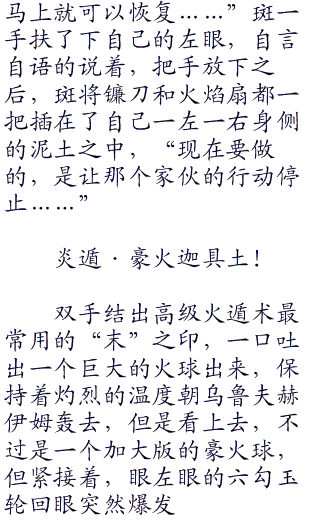 马上就可以恢复……”斑一
手扶了下自己的左眼，自言
自语的说着，把手放下之
后，斑将镰刀和火焰扇都一
把插在了自己一左一右身侧
的泥土之中，“现在要做
的，是让那个家伙的行动停
止……”
炎遁·豪火迦具土！
双手结出高级火遁术最
常用的“末”之印，一口吐
出一个巨大的火球出来，保
持着灼烈的温度朝乌鲁夫赫
伊姆轰去，但是看上去，不
过是一个加大版的豪火球，
但紧接着，眼左眼的六勾玉
轮回眼突然爆发